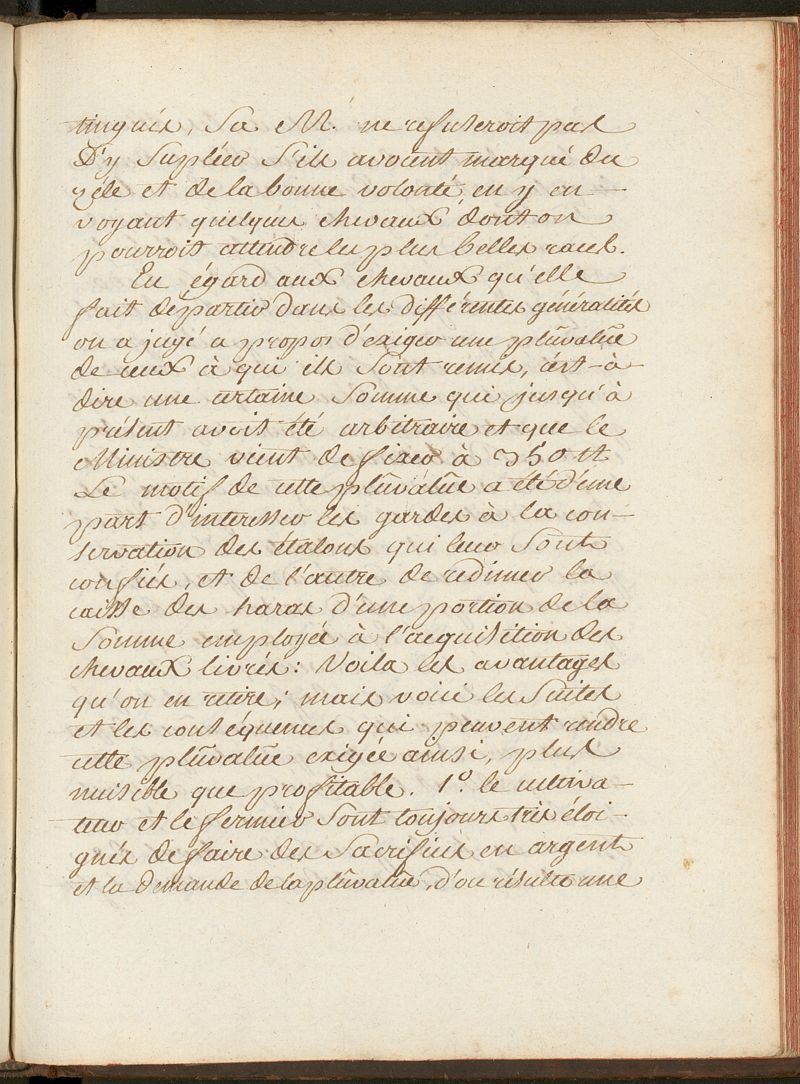 tingués, Sa M. ne refuseroit pas
D'y Supléer S'ils avoient marqué du
zéle et de la bonne volonté, en y en-
voyant quelques chevaux dont on
pourroit attendre les plus belles races.
Eu égard aux chevaux qu'elle
fait departir dans les différentes généralités
on a jugé a propos d'exiger une plûvalüe
de ceux à qui ils Sont remis, c'est-à-
dire une certaine Somme qui jusqu'à
présent avoit été arbitraire et que le
Ministre vient de fixer à 350 ₶
Le motif de cette plûvalüe a été d'une
part d'interesser les gardes à la con-
servation des étalons qui leur Sont
confiés, et de l'autre de redimer la
caisse des haras d'une portion de la
Somme employée à l'acquisition des
chevaux livrés: Voila les avantages
qu'on en retire; mais voici les Suites
et les conséquences qui peuvent rendre
cette plûvalüe exigée ainsi, plus
nuisible que profitable. 1º. le cultiva-
teur et le fermier Sont toujours très éloi-
gnés de faire des Sacrifices en argent
et la demande de la plûvalüe, d'ou résulte une